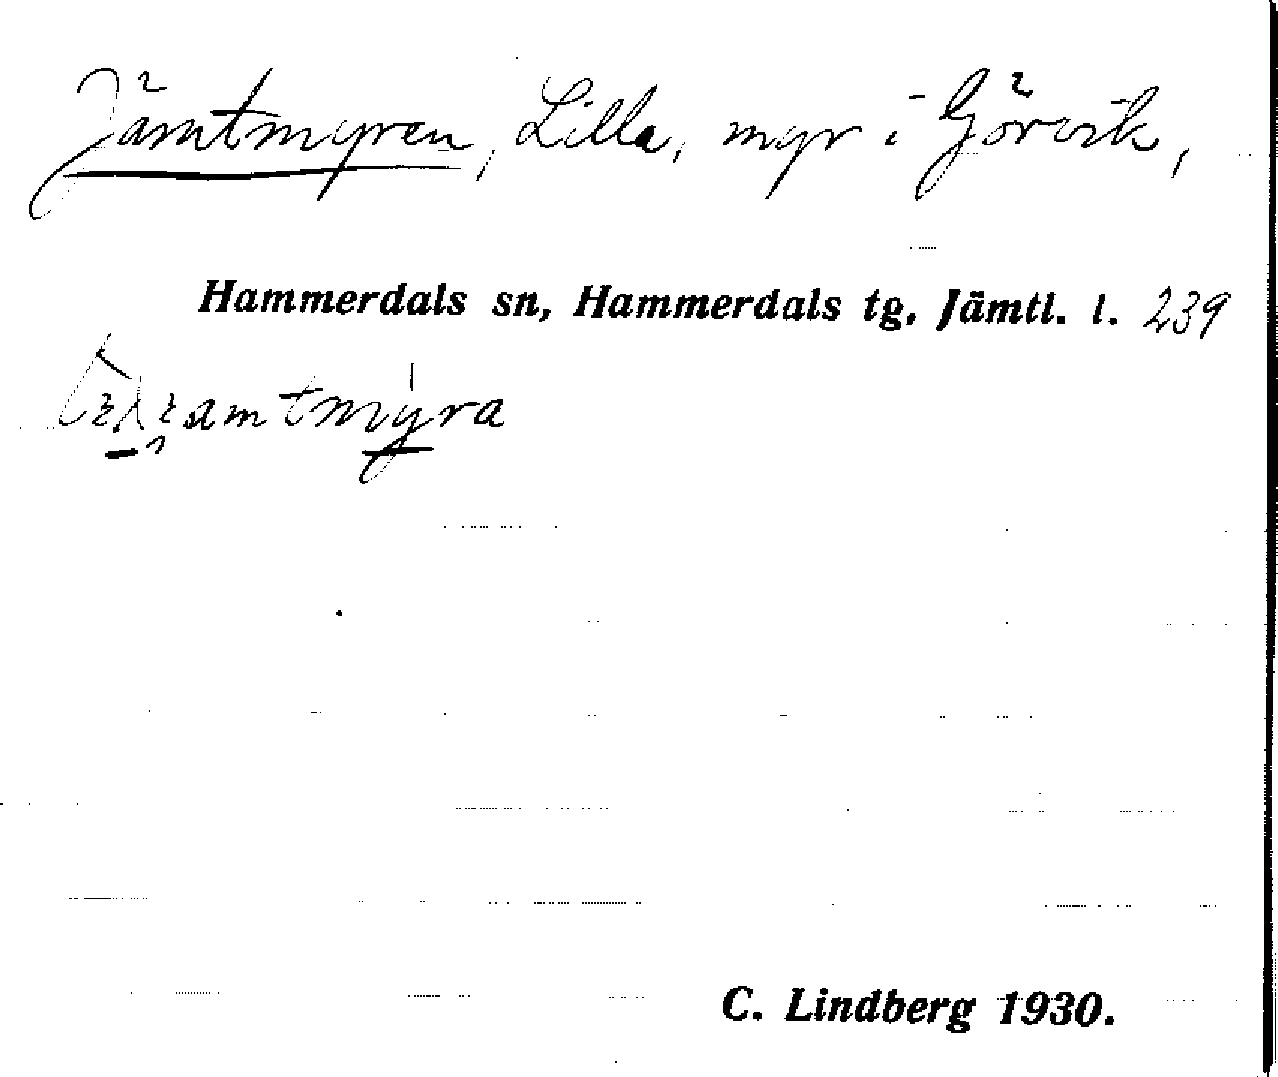 Jämtmyren, Lilla, myr i Görvik,
Hammerdals sn, Hammerdals tg, Jämtl. l. 239
C. Lindberg 1930.